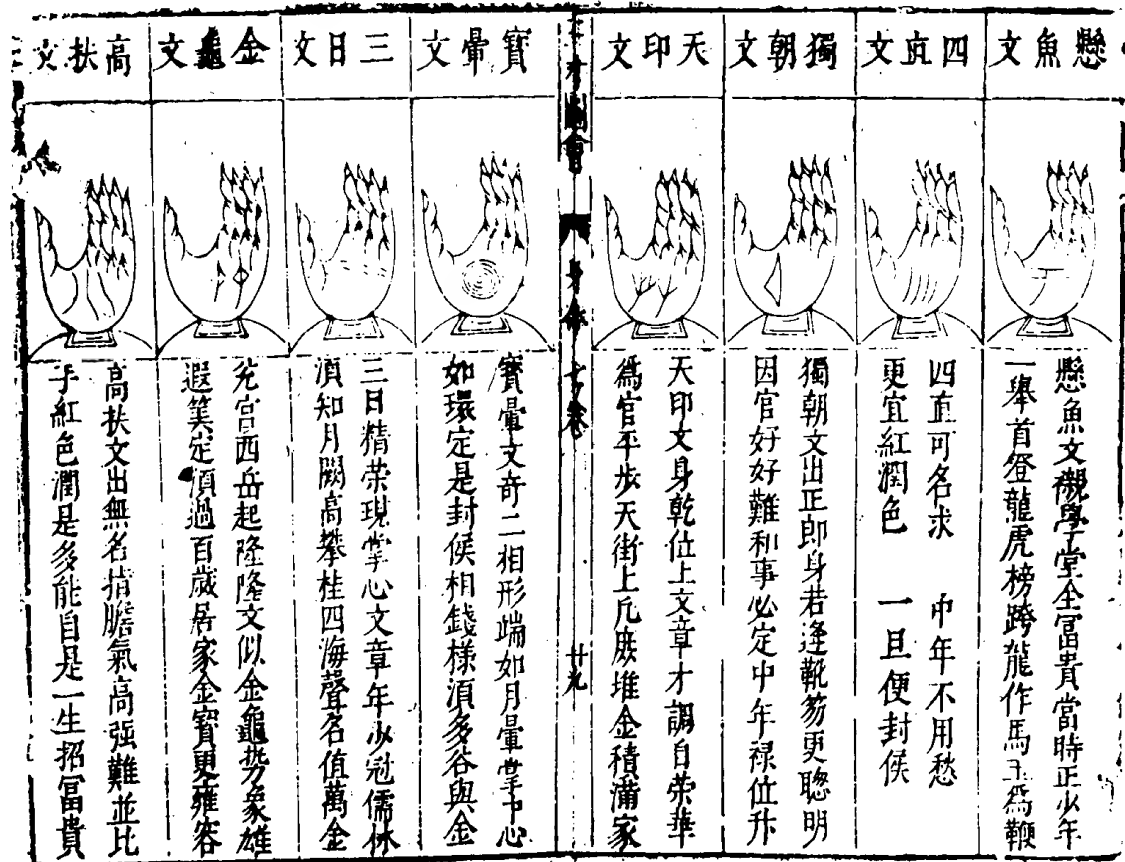 懸魚文
懸魚文襯學堂全富貴當時正少年
一舉首登龍虎榜跨龍作馬玉為鞭
四直文
四直可名求 中年不用愁
更宜紅潤色 一旦便封侯
獨朝文
獨朝文出正郎身若逢靴笏更聰明
因官好好難和事必定中年禄位升
天印文
天印文身乾位上文章才調自荣華
為官平步天街上凡庶堆金積滿家
三才圖會 身體七卷 廿九
寶暈文
寶暈文奇二相形端如月暈掌中心
如環定是封侯相錢樣湏多谷與金
三日文
三日精荣現掌心文章年少冠儒林
湏知月闕高攀桂四海聲名值萬金
金龜文
兊宫西岳起隆隆文似金龜势象雄
遐筭定湏過百歲居家金寶更雍容
高扶文
高扶文出無名指膽氣高强難並比
手紅色潤是多能自是一生招富貴